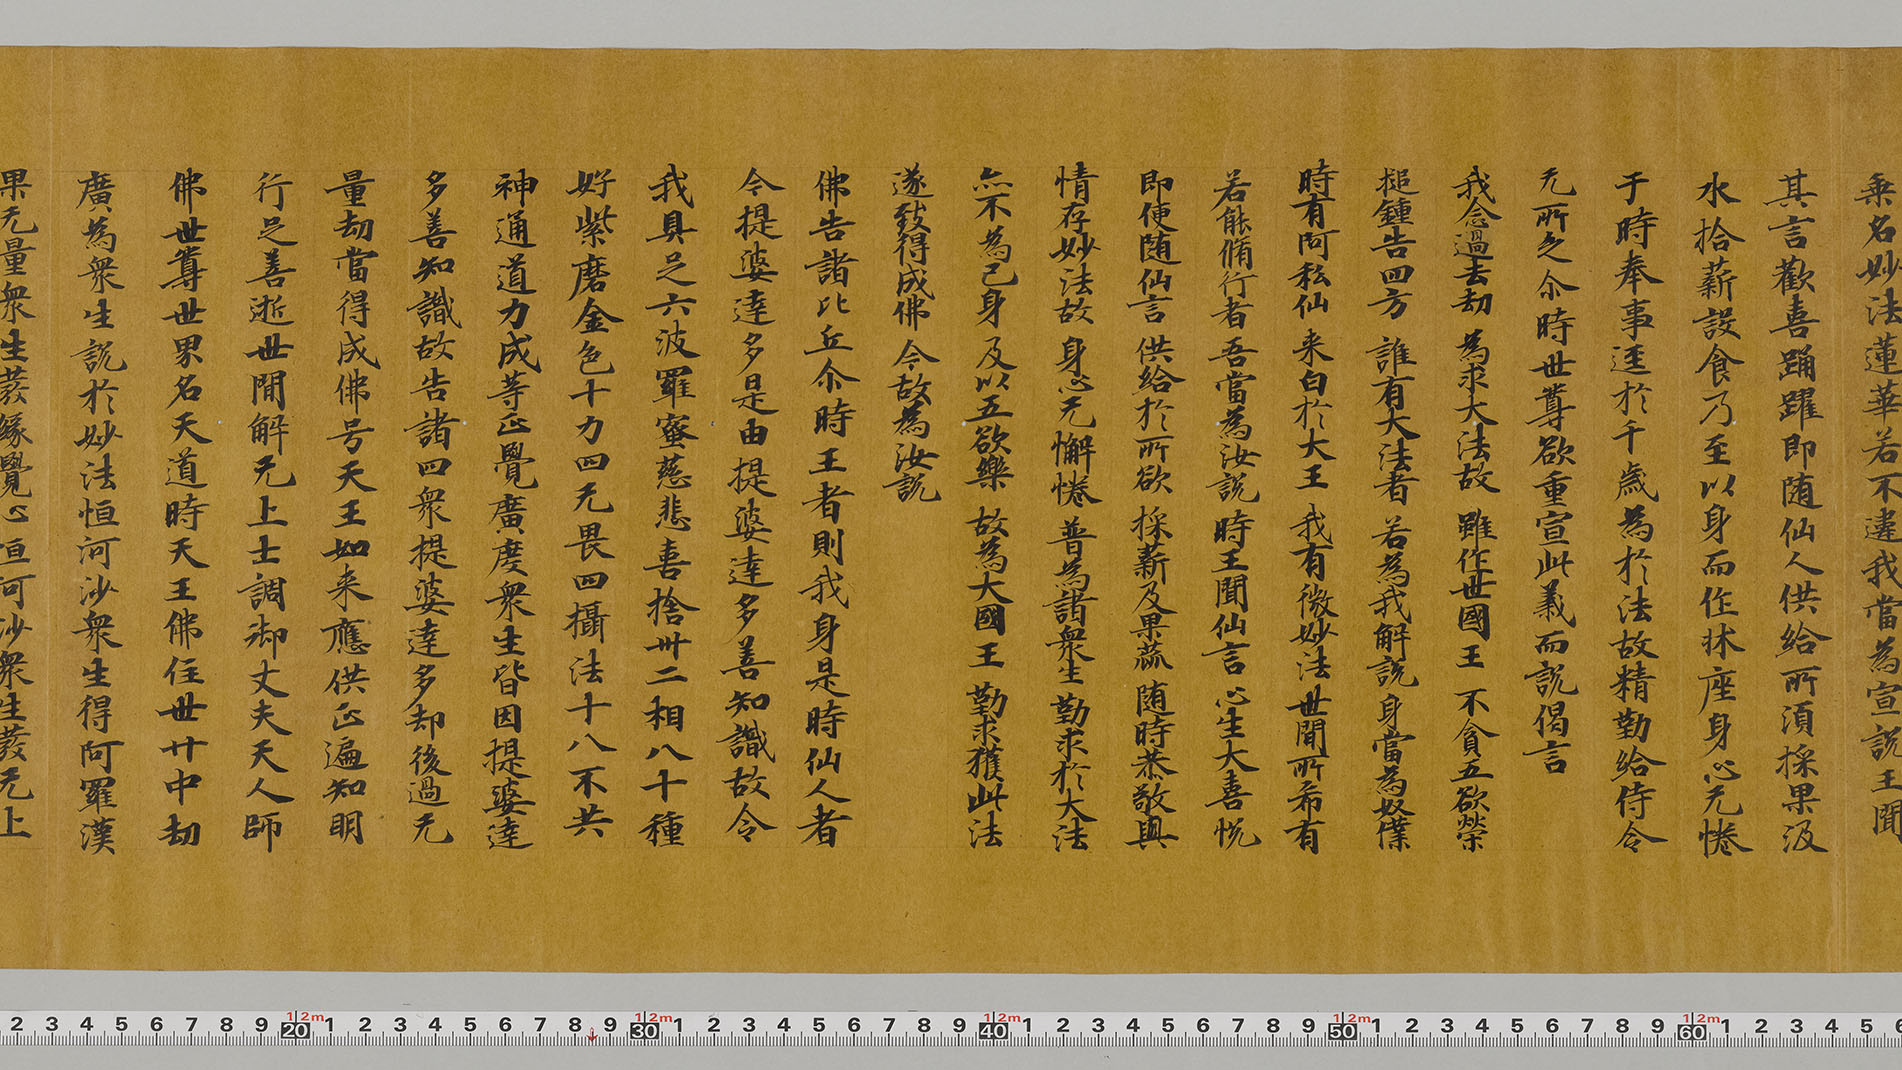 乗名妙法蓮華若不違我當為宣説王聞
其言歡喜踊躍即随仙人供給所須採果汲
水拾薪設食乃至以身而作牀座身心无惓
于時奉事逕於千歳為於法故精勤給侍令
无所乏尒時世尊欲重宣此義而説偈言
我念過去劫 為求大法故 雖作世國王 不貪五欲樂
搥鍾告四方 誰有大法者 若為我解説 身當為奴僕
時有阿私仙 来白於大王 我有微妙法 世間所希有
若能脩行者 吾當為汝説 時王聞仙言 心生大喜悦
即便随仙言 供給於所欲 採薪及果蓏 随時恭敬與
情存妙法故 身心无懈惓 普為諸衆生 勤求於大法
亦不為己身 及以五欲樂 故為大國王 勤求獲此法
遂致得成佛 今故為汝説
佛告諸比丘尒時王者則我身是時仙人者
今提婆達多是由提婆達多善知識故令
我具足六波羅蜜慈悲喜捨卅二相八十種
好紫磨金色十力四无畏四攝法十八不共
神通道力成等正覺廣度衆生皆因提婆達
多善知識故告諸四衆提婆達多却後過无
量劫當得成佛号天王如来應供正遍知明
行足善逝世間解无上士調御丈夫天人師
佛世尊世界名天道時天王佛住世廿中劫
廣為衆生説於妙法恒河沙衆生得阿羅漢
果无量衆生發縁覺心恒河沙衆生發无上
2 3 4 5 6 7 8 9 20 1 2 3 4 5 6 7 8 9 30 1 2 3 4 5 6 7 8 9 40 1 2 3 4 5 6 7 8 9 50 1 2 3 4 5 6 7 8 9 60 1 2 3 4 5 6
1 2m 1 2m 1 2m 1 2m 1 2m